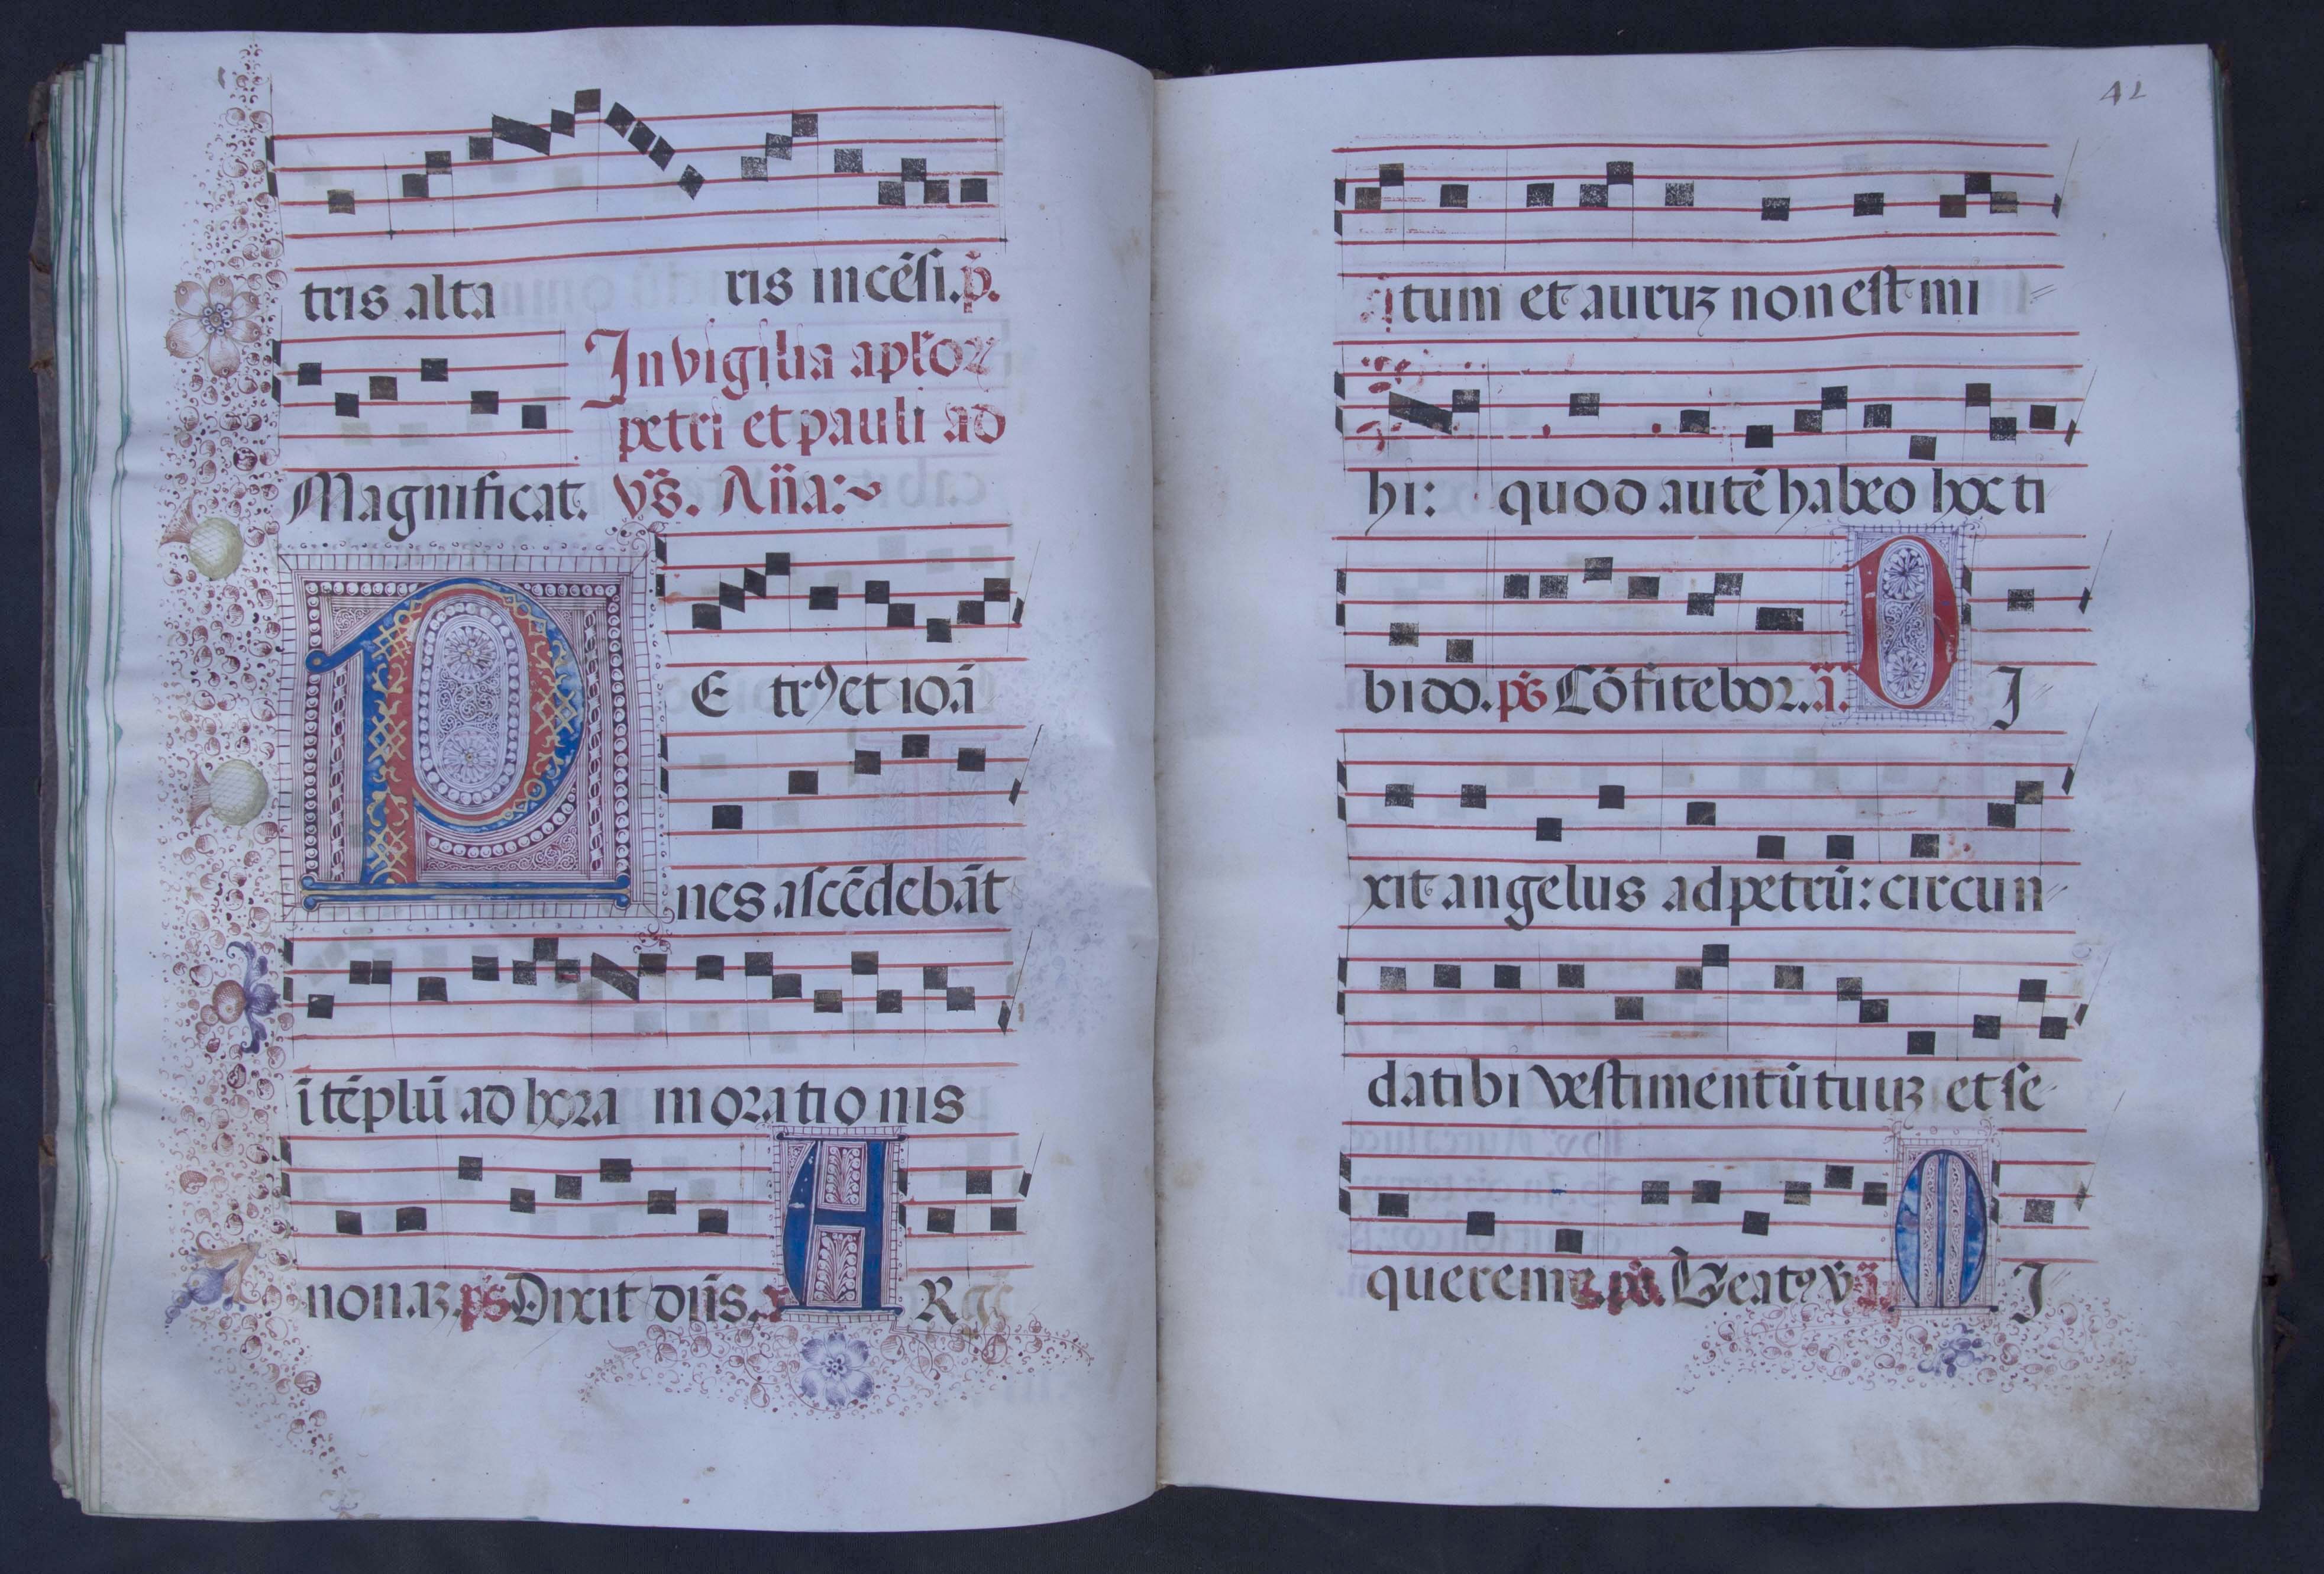 tris alta ris incēsi. p̄.
In vigilia aplōꝝ
petri et pauli ad
Magnificat. vs̄. Añа:~
P E trꝰ et ioā
nes ascēdebāt
ī tēplū ad hora m orationis
nonaꝫ. ps̄. Dixit dn̄s. A R
42
tum et auruꝫ non est mi
hi: quod autē habeo hoc ti
bi do. ps̄ Cōfitebor. ā. D I
xit angelus ad petrū: circun
da tibi vestimentū tuuꝫ et se
quere me. ps̄. Beatꝰ v M I